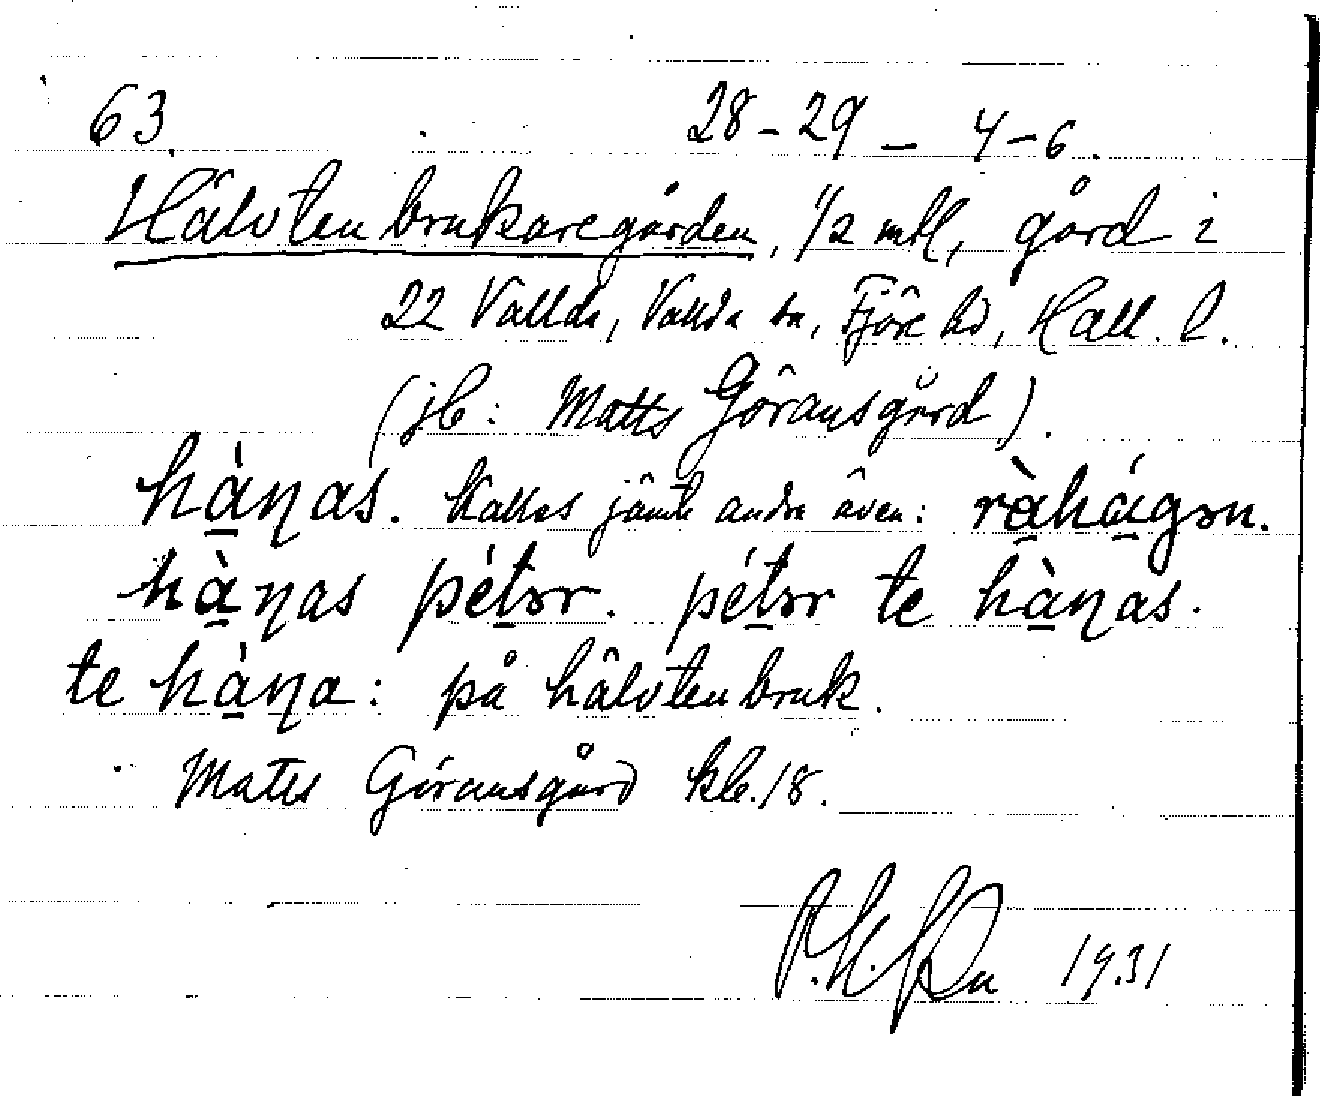 63. 28-29 - 4-6.
Hälvtenbrukaregården, 1/2 mtl, gård i
22 Vallda, Vallda sn, Fjäre hd, Hall. l.
(jb: Matts Göransgård).
hàŋas. Kallas jämte andra även: ràhágən.
hàŋas pétər. pétər te hàŋas.
te hàŋa: på hälvtenbruk.
Matts Göransgård kb. 18.
1931